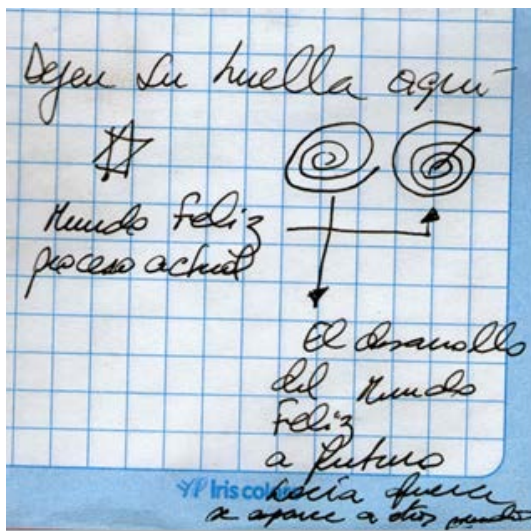 Dejen su huella aquí
Mundo Feliz
proceso actual
El desarrollo
del Mundo
Feliz
a futuro
hacia fuera
se aparece a otros mundos
Iris color